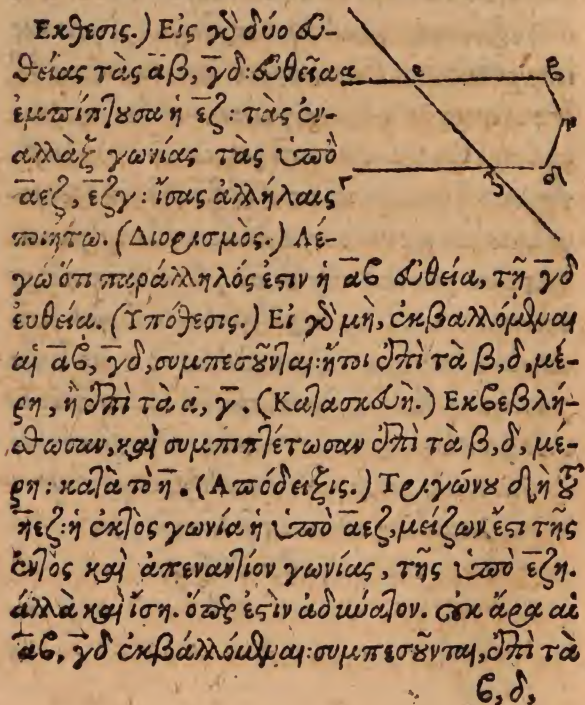 Εκθεσις.) Εἰς γὸ δύο εὐ-
θείας τὰς α̅β, γ̅δ: εὐθεῖα
ἐμπίπτουσα ἡ ε̅ζ: τὰς ἐν-
αλλὰξ γωνίας τὰς ὑπὸ
α̅εζ, ε̅ζγ: ἴσας ἀλλήλαις
ποιήτω. (Διορισμὸς.) Λέ-
γω ὅτι παράλληλός ἐστιν ἡ α̅β εὐθεία, τῇ γ̅δ
ἐυθεία. (Υπόθεσις.) Εἰ γὸ μὴ, ἐκβαλλόμεναι
αἱ α̅β, γ̅δ, συμπεσοῦνται: ἤτοι ἐπὶ τὰ β, δ, μέ-
ρη, ἢ ἐπὶ τὰ α, γ̅. (Κατασκευὴ.) Εκβεβλή-
σθωσαν, καὶ συμπιπτέτωσαν ἐπὶ τὰ β, δ, μέ-
ρη: κατὰ τὸ η̅. (Απόδειξις.) Τριγώνου δὴ τοῦ
η̅εζ: ἡ ἐκτὸς γωνία ἡ ὑπὸ α̅εζ, μείζων ἐστὶ τῆς
ἐντὸς καὶ ἀπεναντίον γωνίας, τῆς ὑπὸ ε̅ζη.
ἀλλὰ καὶ ἴση. ὅπερ ἐστὶν ἀδύνατον. οὐκ ἄρα αἱ
α̅β, γ̅δ ἐκβάλλόμεναι: συμπεσοῦνται, ἐπὶ τὰ
β, δ,
α
ε
β
η
γ
ζ
δ